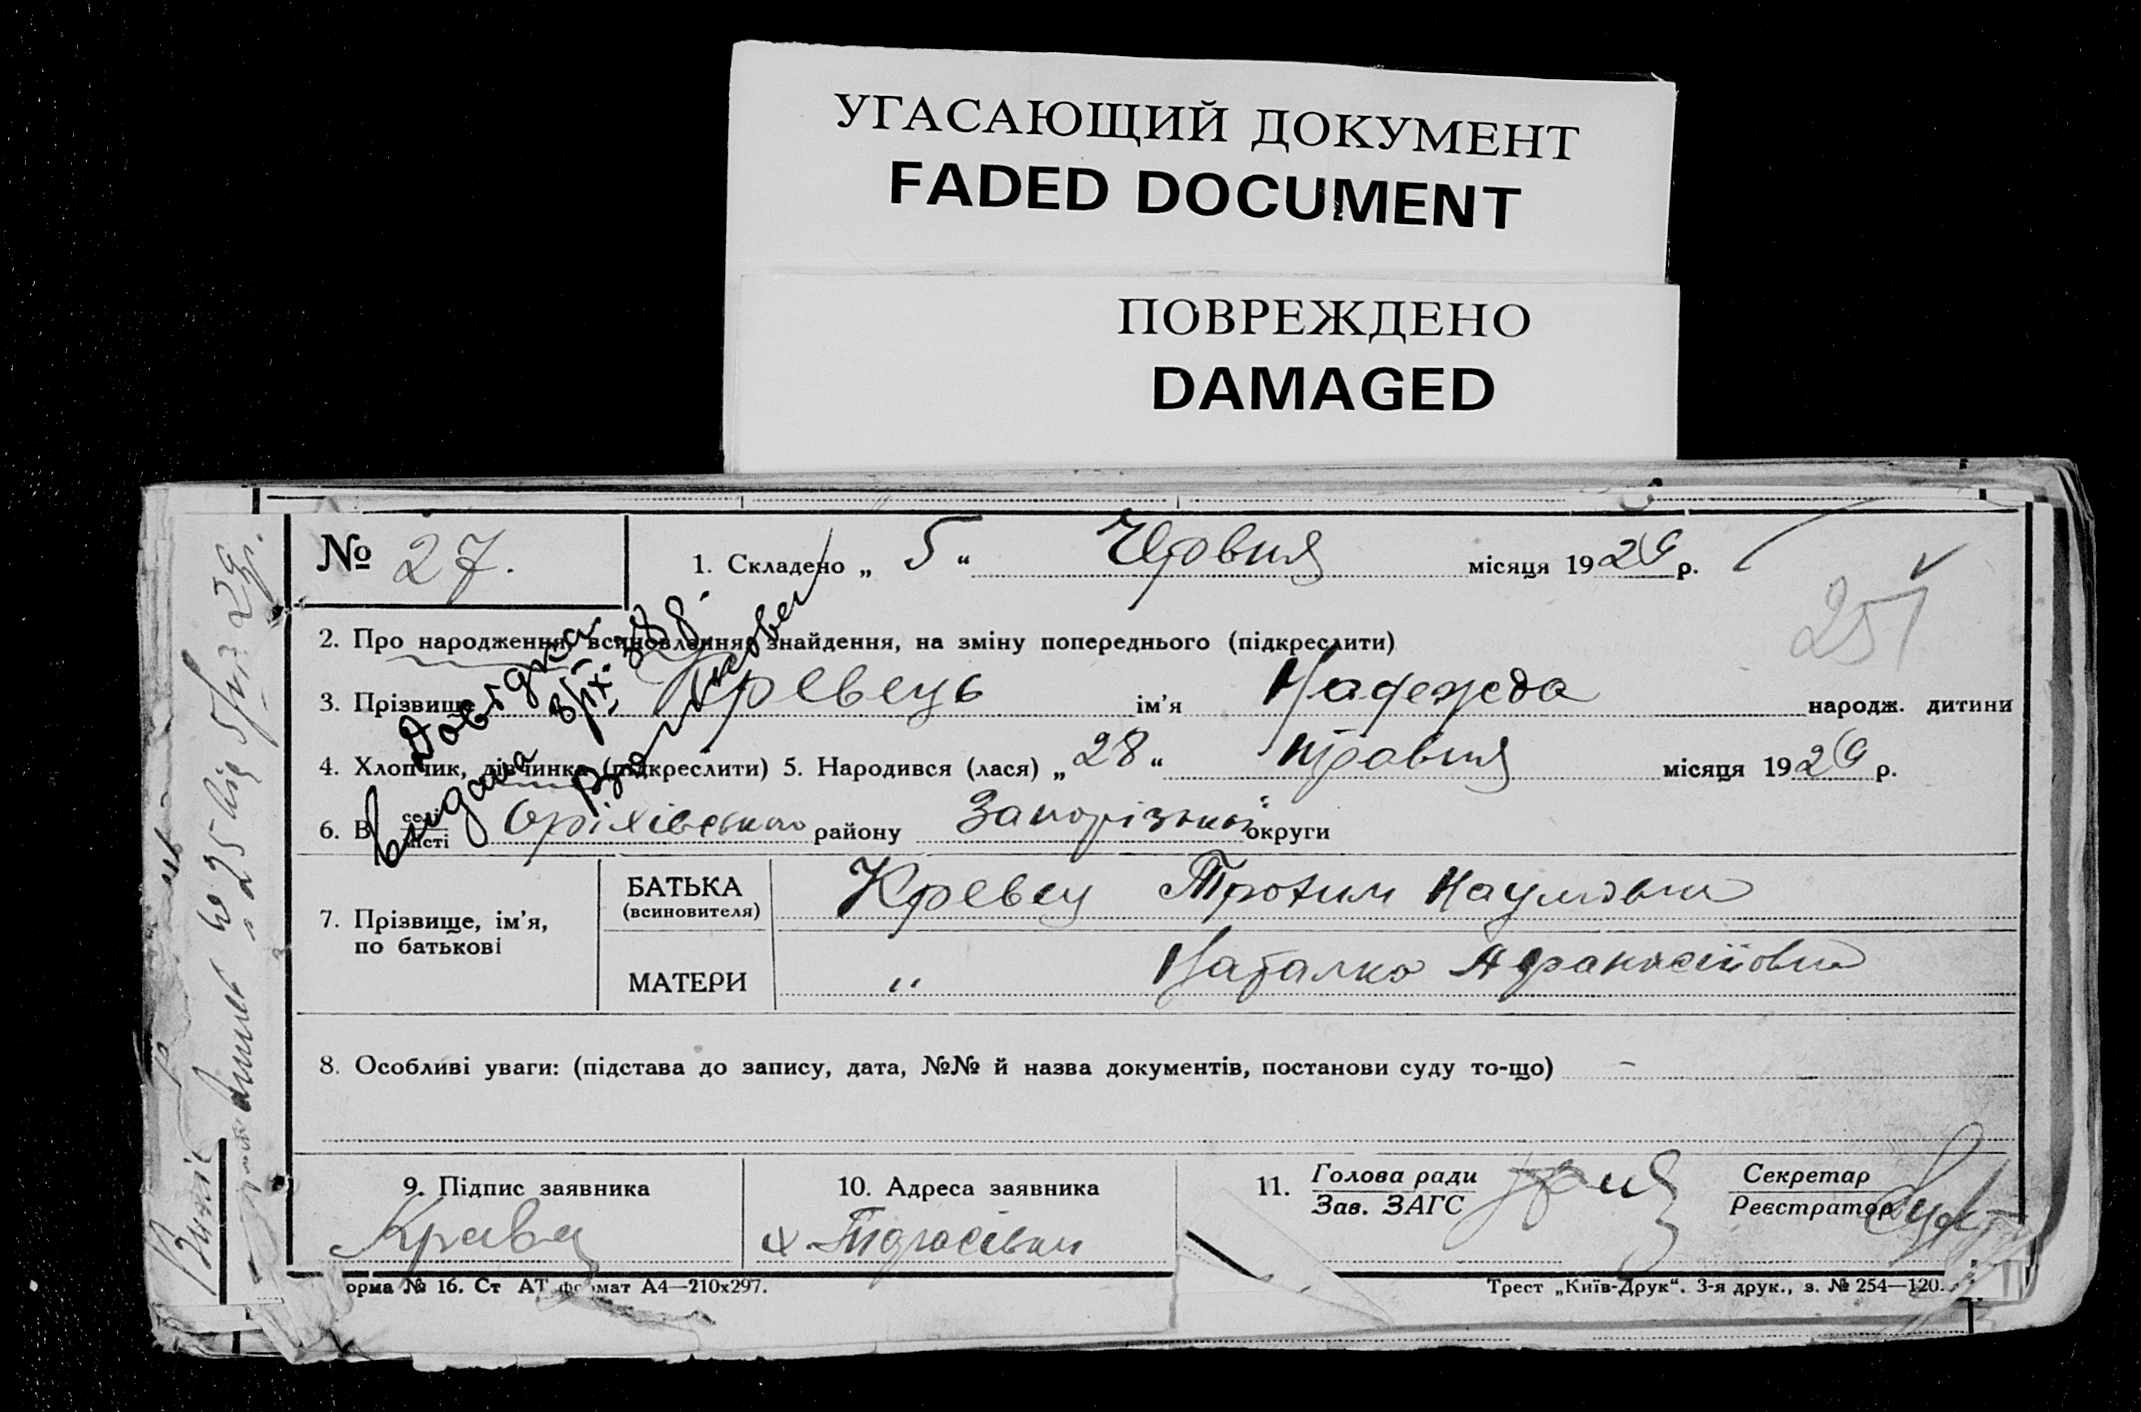 УГАСАЮЩИЙ ДОКУМЕНТ
FADED DOCUMENT
ПОВРЕЖДЕНО
DAMAGED
№ 27.
1. Складено „ 5 “ Червня місяця 1929 р.
251
2. Про народження, всиновлення, знайдення, на зміну попереднього (підкреслити)
3. Прізвище Кревець ім'я Надежда народж. дитини
4. Хлопчик, дівчинка (підкреслити) 5. Народився (лася) „ 28 “ травня місяця 1929 р.
6. В селі місті Оріхівського району Запорізької округи
Видана довідка
7. Прізвище, ім'я, по батькові
БАТЬКА (всиновителя) Кревец Трохим Наумович
МАТЕРИ " Наталка Афанасіївна
8. Особливі уваги: (підстава до запису, дата, №№ й назва документів, постанови суду то-що) –
9. Підпис заявника
10. Адреса заявника
11. Голова ради Зав. ЗАГС
Секретар Реєстратор
орма № 16. Ст АТ формат А4—210х297.
Трест „Київ-Друк“. 3-я друк., з. № 254—120.